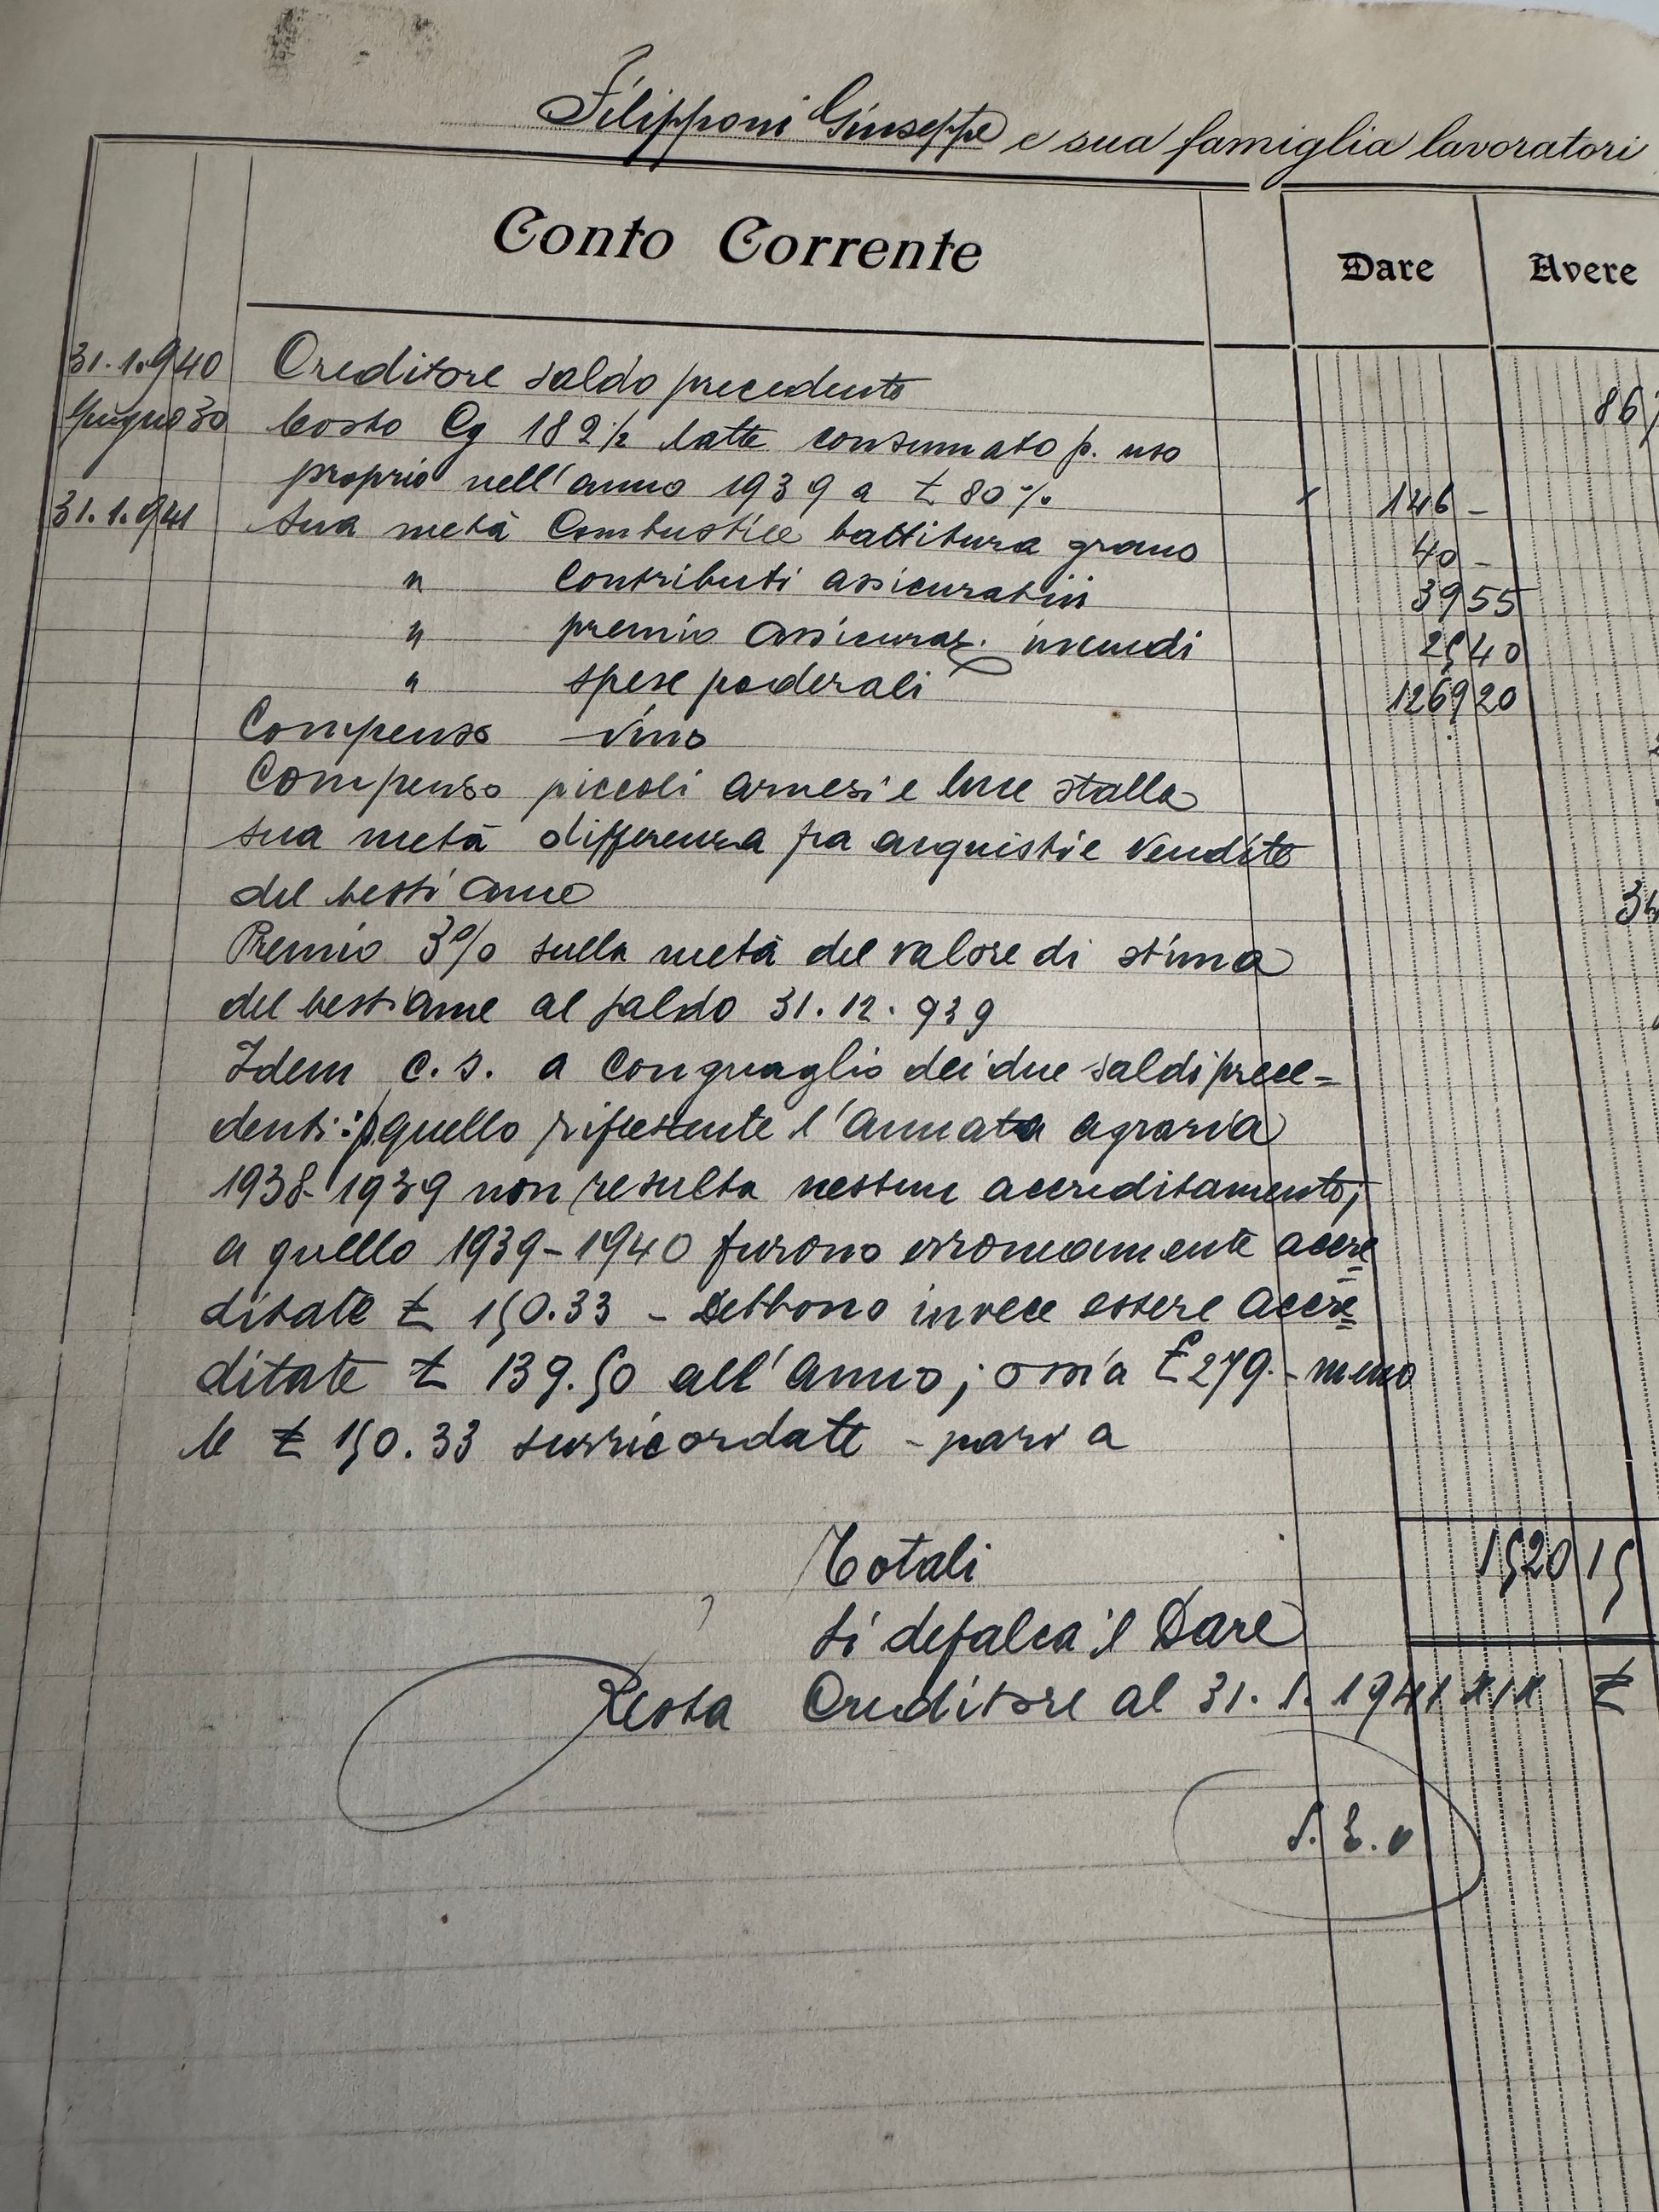 Filipponi Giuseppe e sua famiglia lavoratori
Conto Corrente Dare Avere
31.1.940 Creditore saldo precedente 867
Giugno 30 Costo Cg 182½ latte consumato p. uso
proprio nell'anno 1939 a £ 80% 146 -
31.1.941 Sua metà Combustile battitura grano 40 -
" Contributi assicurativi 39 55
" premio assicuraz. incendi 25 40
" spese poderali 1269 20
Compenso vino
Compenso piccoli arnesi e luce stalla
sua metà differenza fra acquisti e vendite
del bestiame 34
Premio 3% sulla metà del valore di stima
del bestiame al saldo 31.12.939
Idem c.s. a Conguaglio dei due saldi prece=
denti: p quello riflettente l'annata agraria
1938-1939 non resulta nessun accreditamento;
a quello 1939-1940 furono erroneamente accre
ditate £ 150.33 - Debbono invece essere accre
ditate £ 139.50 all'anno; ossia £ 279.- meno
le £ 150.33 surricordate - pari a
Totali 1520 15
Si defalca il Dare
Resta Creditore al 31.1.1941 £
S.E.O